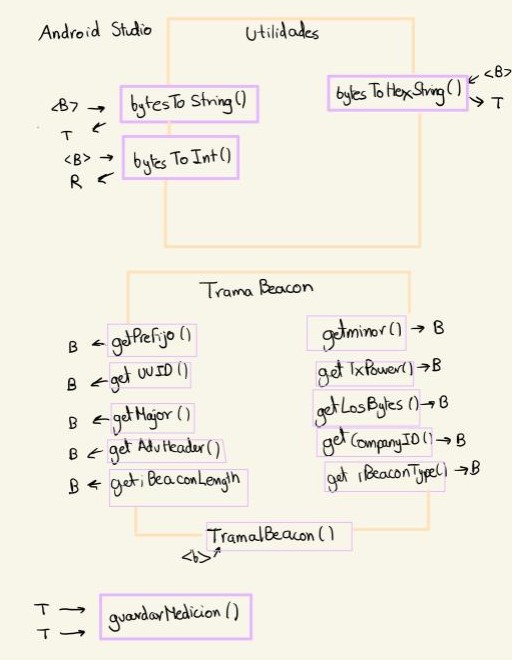 Android Studio
Utilidades
<B> →
bytesToString()
T ←
<B> →
bytesToInt()
R ←
bytesToHexString()
← <B>
→ T
Trama Beacon
B ← getPrefijo()
B ← get UUID()
B ← getMajor()
B ← get AdvHeader()
B ← getiBeaconLength
getminor() → B
get TxPower() → B
getLosBytes() → B
get CompanyID() → B
get iBeaconType() → B
TramaIBeacon()
<b>
T →
T →
guardarMedicion()